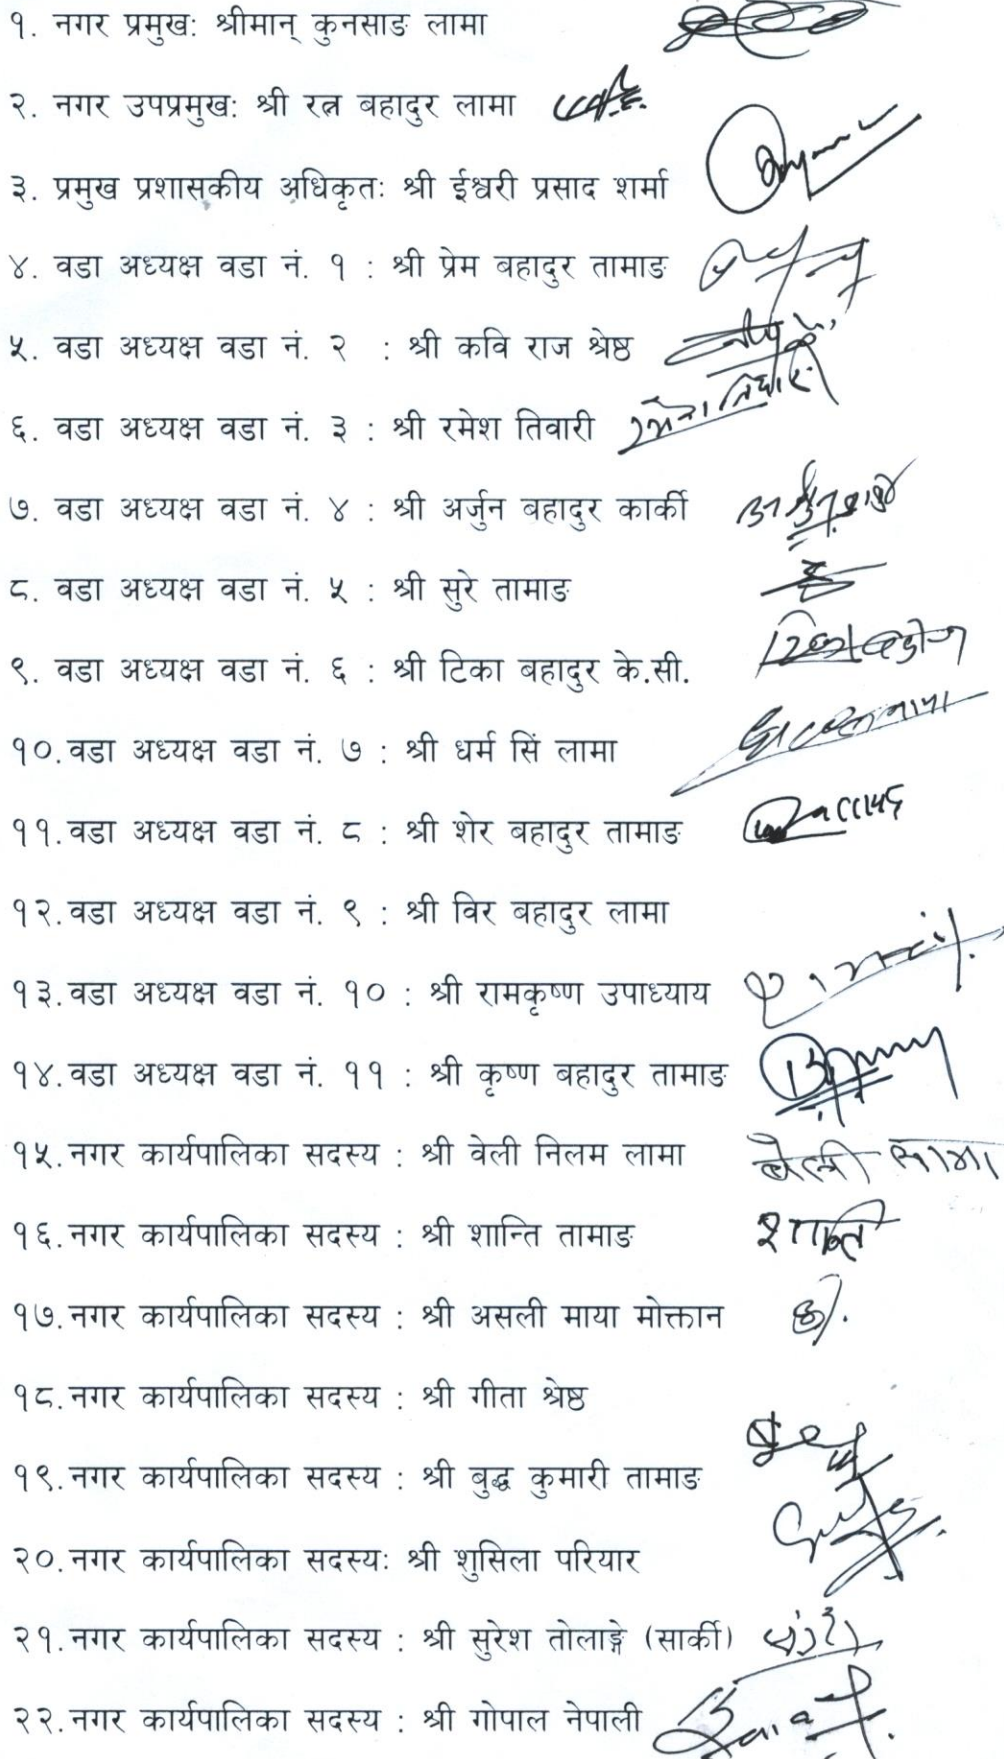 १. नगर प्रमुख: श्रीमान् कुनसाङ लामा
२. नगर उपप्रमुख: श्री रत्न बहादुर लामा
३. प्रमुख प्रशासकीय अधिकृतः श्री ईश्वरी प्रसाद शर्मा
४. वडा अध्यक्ष वडा नं. १ : श्री प्रेम बहादुर तामाङ
५. वडा अध्यक्ष वडा नं. २ : श्री कवि राज श्रेष्ठ
६. वडा अध्यक्ष वडा नं. ३ : श्री रमेश तिवारी
७. वडा अध्यक्ष वडा नं. ४ : श्री अर्जुन बहादुर कार्की
८. वडा अध्यक्ष वडा नं. ५ : श्री सुरे तामाङ
९. वडा अध्यक्ष वडा नं. ६ : श्री टिका बहादुर के.सी.
१०. वडा अध्यक्ष वडा नं. ७ : श्री धर्म सिं लामा
११. वडा अध्यक्ष वडा नं. ८ : श्री शेर बहादुर तामाङ
१२. वडा अध्यक्ष वडा नं. ९ : श्री विर बहादुर लामा
१३. वडा अध्यक्ष वडा नं. १० : श्री रामकृष्ण उपाध्याय
१४. वडा अध्यक्ष वडा नं. ११ : श्री कृष्ण बहादुर तामाङ
१५. नगर कार्यपालिका सदस्य : श्री वेली निलम लामा बेली लामा
१६. नगर कार्यपालिका सदस्य : श्री शान्ति तामाङ शान्ति
१७. नगर कार्यपालिका सदस्य : श्री असली माया मोक्तान
१८. नगर कार्यपालिका सदस्य : श्री गीता श्रेष्ठ
१९. नगर कार्यपालिका सदस्य : श्री बुद्ध कुमारी तामाङ
२०. नगर कार्यपालिका सदस्यः श्री शुसिला परियार
२१. नगर कार्यपालिका सदस्य : श्री सुरेश तोलाङ्गे (सार्की)
२२. नगर कार्यपालिका सदस्य : श्री गोपाल नेपाली